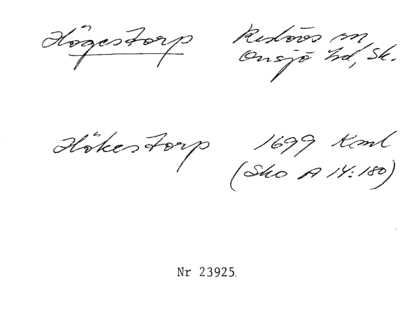 Högestorp Risböös sn
Onsjö hd, Sk.
Hökestorp 1699 Kml
(Sko A 14:180)
Nr 23925.